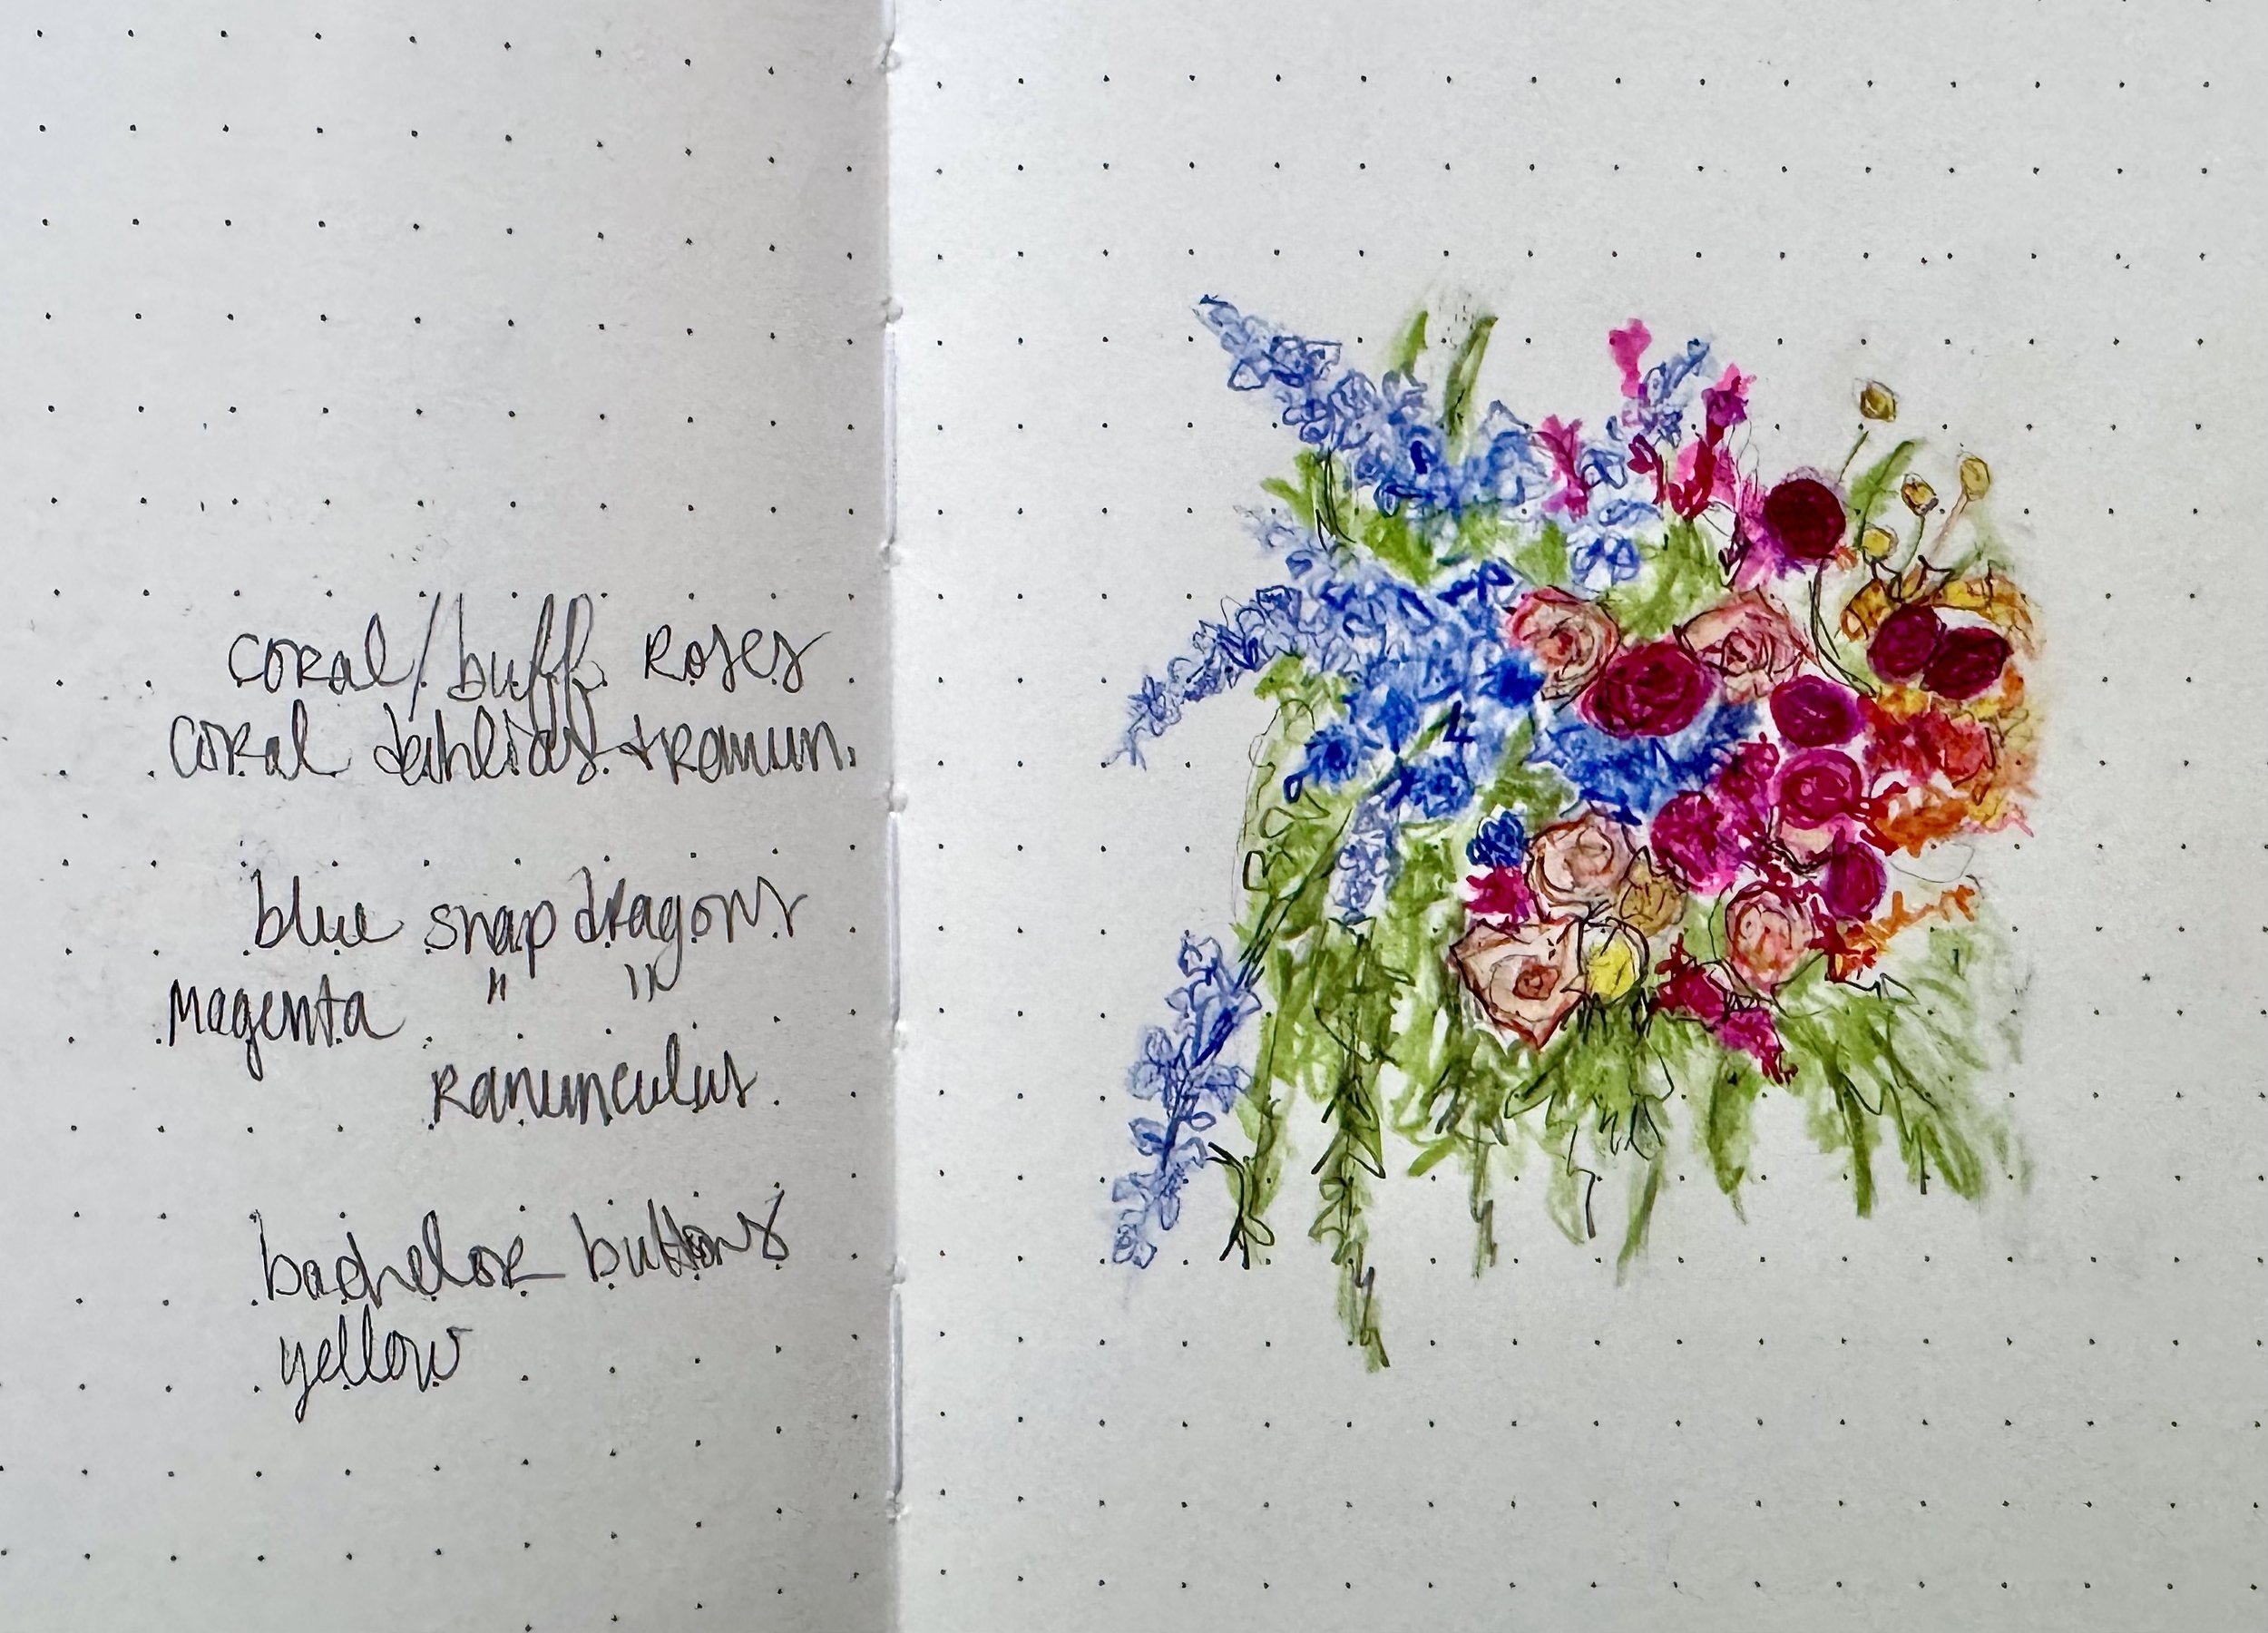 coral/buff roses
coral dahlias + ranun.
blue snapdragons
Magenta " "
ranunculus
bachelor buttons
yellow